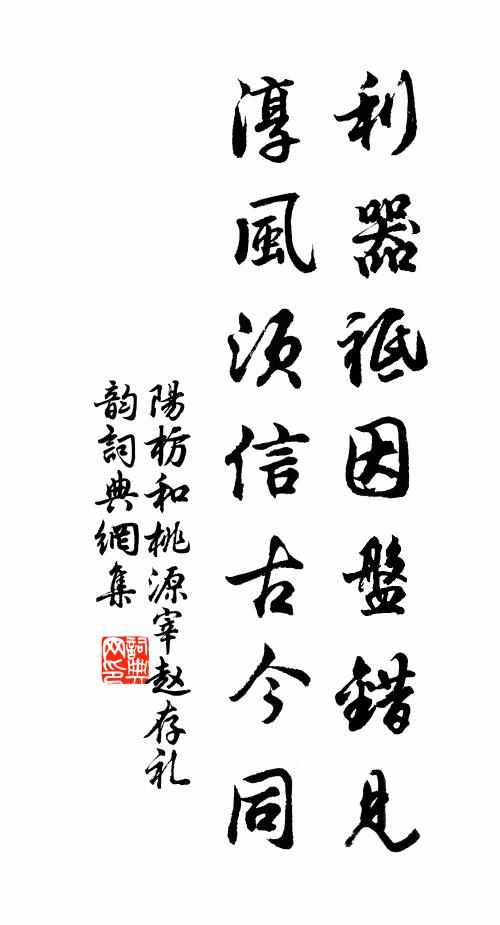 利器祗因盤錯見
淳風須信古今同
陽枋和桃源宰赵存礼
韵詞典網集
詞典網印